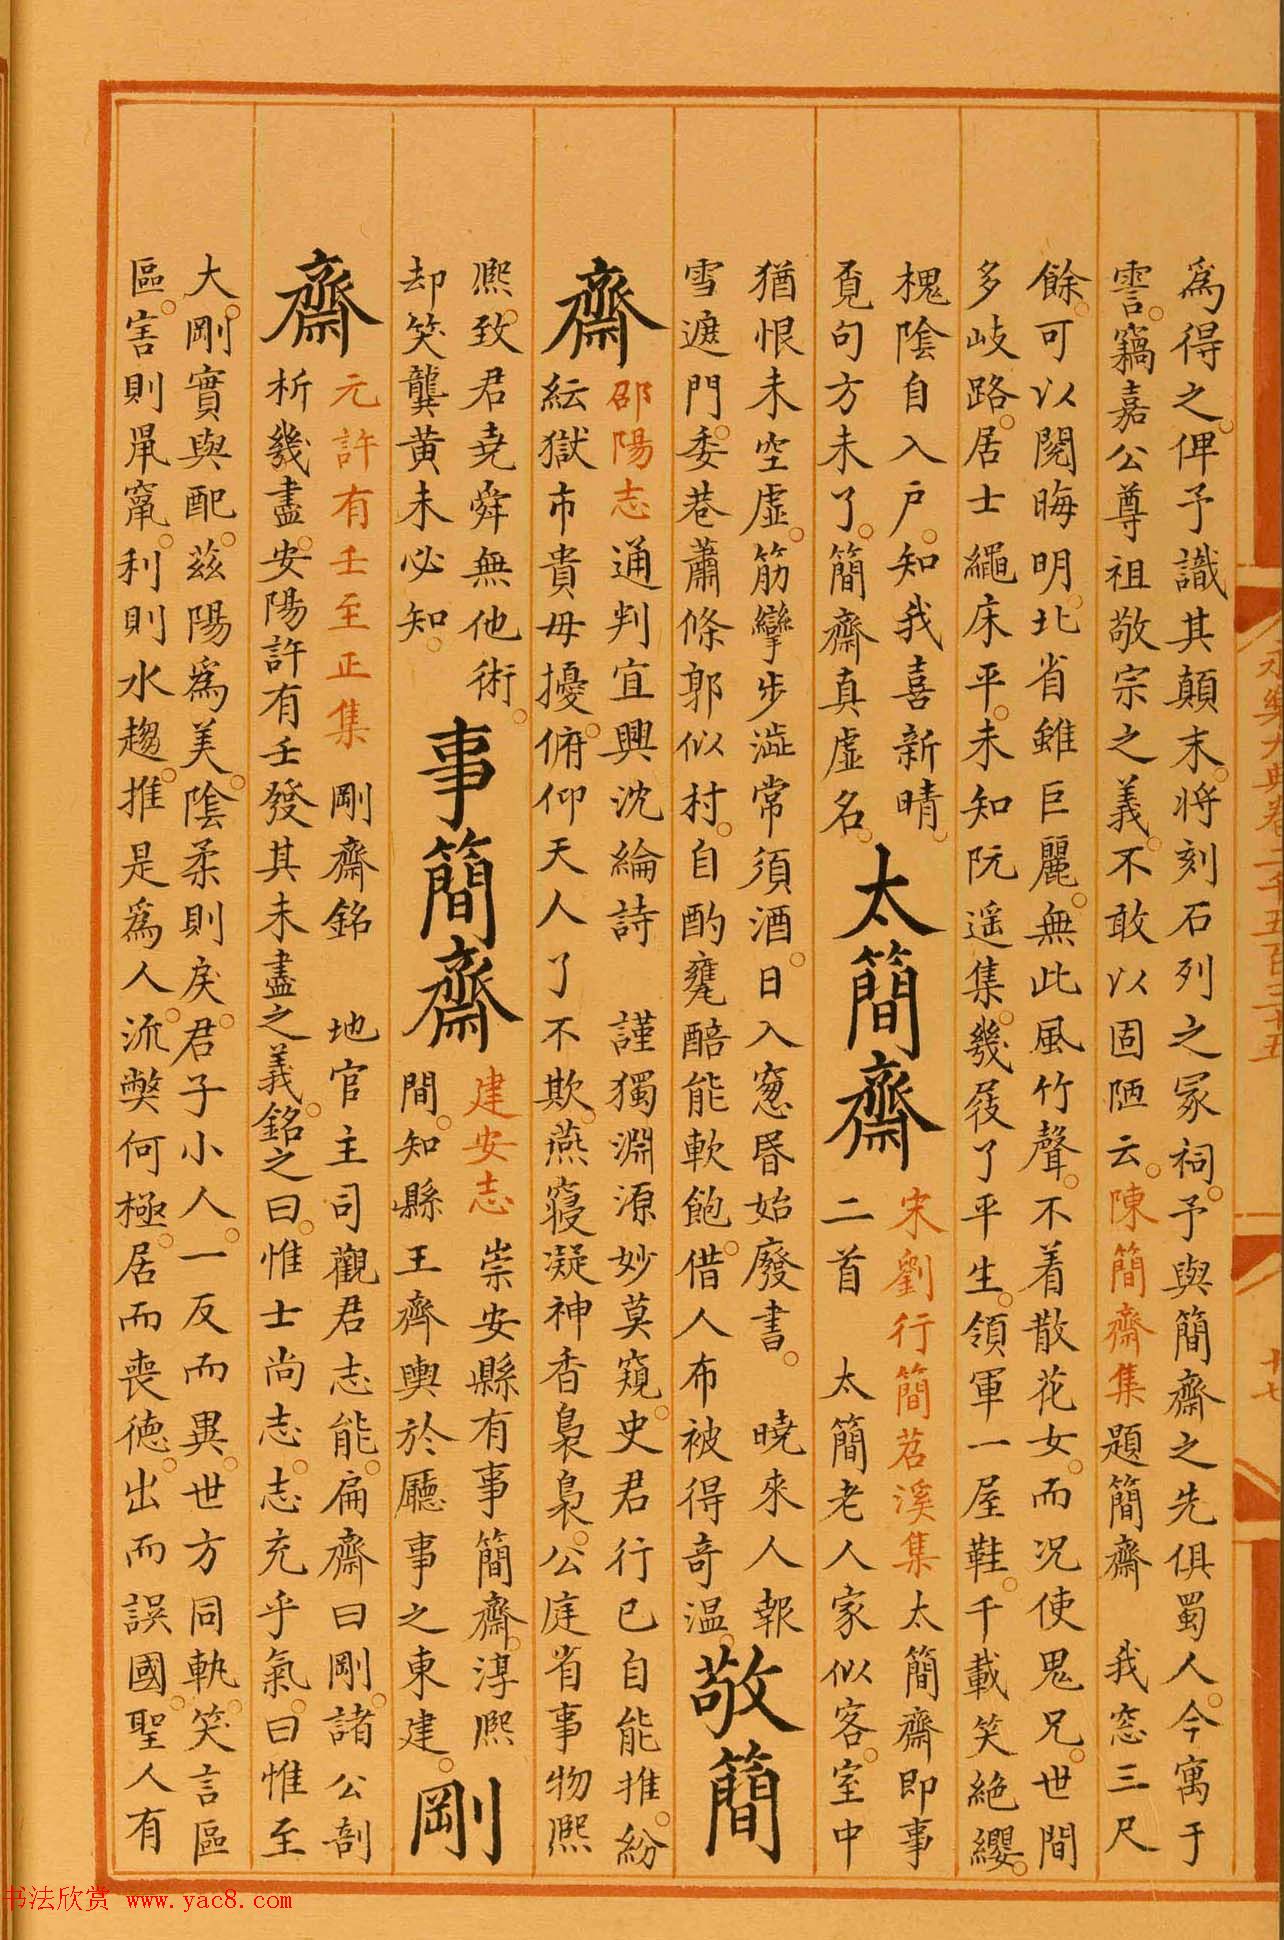 爲得之。俾予識其顛末。將刻石列之冢祠。予與簡齋之先俱蜀人。今寓于
霅。竊嘉公尊祖敬宗之義。不敢以固陋云。陳簡齋集題簡齋 我窓三尺
餘。可以閱晦明。北省雖巨麗。無此風竹聲。不着散花女。而況使鬼兄。世間
多岐路。居士繩床平。未知阮遥集。幾屐了平生。領軍一屋鞋。千載笑絶纓。
槐陰自入戶。知我喜新晴。
覓句方未了。簡齋真虛名。
太簡齋
宋劉行簡苕溪集太簡齋即事
二首 太簡老人家似客。室中
猶恨未空虛。筋攣步澁常須酒。日入窓昏始廢書。 曉來人報
雪遮門。委巷蕭條郭似村。自酌甕醅能軟飽。借人布被得奇温。
敬簡
齋
邵陽志通判宜興沈綸詩 謹獨淵源妙莫窺。史君行已自能推。紛
紜獄市貴毋擾。俯仰天人了不欺。燕寢凝神香裊裊。公庭省事物熙
熙。致君堯舜無他術。
却笑龔黄未必知。
事簡齋
建安志崇安縣有事簡齋。淳熙
間。知縣王齊輿於廳事之東建。
剛
齋
元許有壬至正集 剛齋銘 地官主司觀君志能。扁齋曰剛。諸公剖
析幾盡。安陽許有壬發其未盡之義。銘之曰。惟士尚志。志充乎氣。曰惟至
大。剛實與配。兹陽爲美。陰柔則戾。君子小人。一反而異。世方同軌。笑言區
區。害則鼠竄。利則水趨。推是爲人。流弊何極。居而喪徳。出而誤國。聖人有
永樂大典卷二千五百三十五
十七
书法欣赏 www.yac8.com